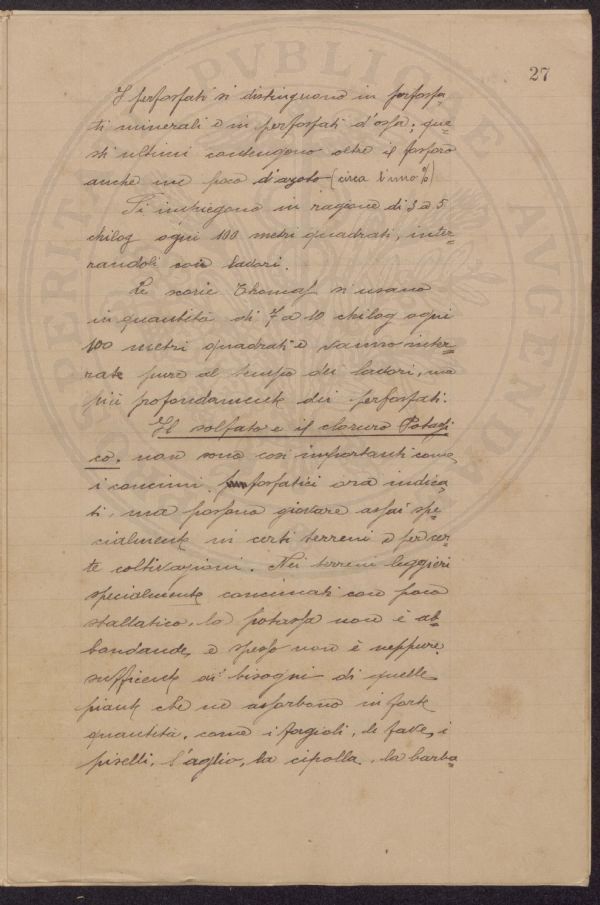 27
I perfosfati si distinguono in perfosfa-
ti minerali e in perfosfati d'ossa; que-
sti ultimi contengono oltre il fosforo
anche un poco d'azoto (circa l'uno %)
Si impiegano in ragione di 3 a 5
chilog ogni 100 metri quadrati, inter-
randoli coi lavori.
Le scorie Thomas si usano
in quantità di 7 a 10 chilog ogni
100 metri quadrati e vanno inter-
rate pure al tempo dei lavori, ma
più profondamente dei perfosfati.
Il solfato e il cloruro Potassi
co. non sono così importanti come
i concimi fosfatici ora indica-
ti, ma possono giovare assai spe-
cialmente in certi terreni e per cer-
te coltivazioni. Nei terreni leggieri
specialmente concimati con poco
stallatico, la potassa non è ab-
bondande, e spesso non è neppure
sufficente ai bisogni di quelle
piante che ne assorbono in forte
quantità, come i fagioli, le fave, i
piselli, l'aglio, la cipolla, la barba-
PVBLICAE
AVGENDAE